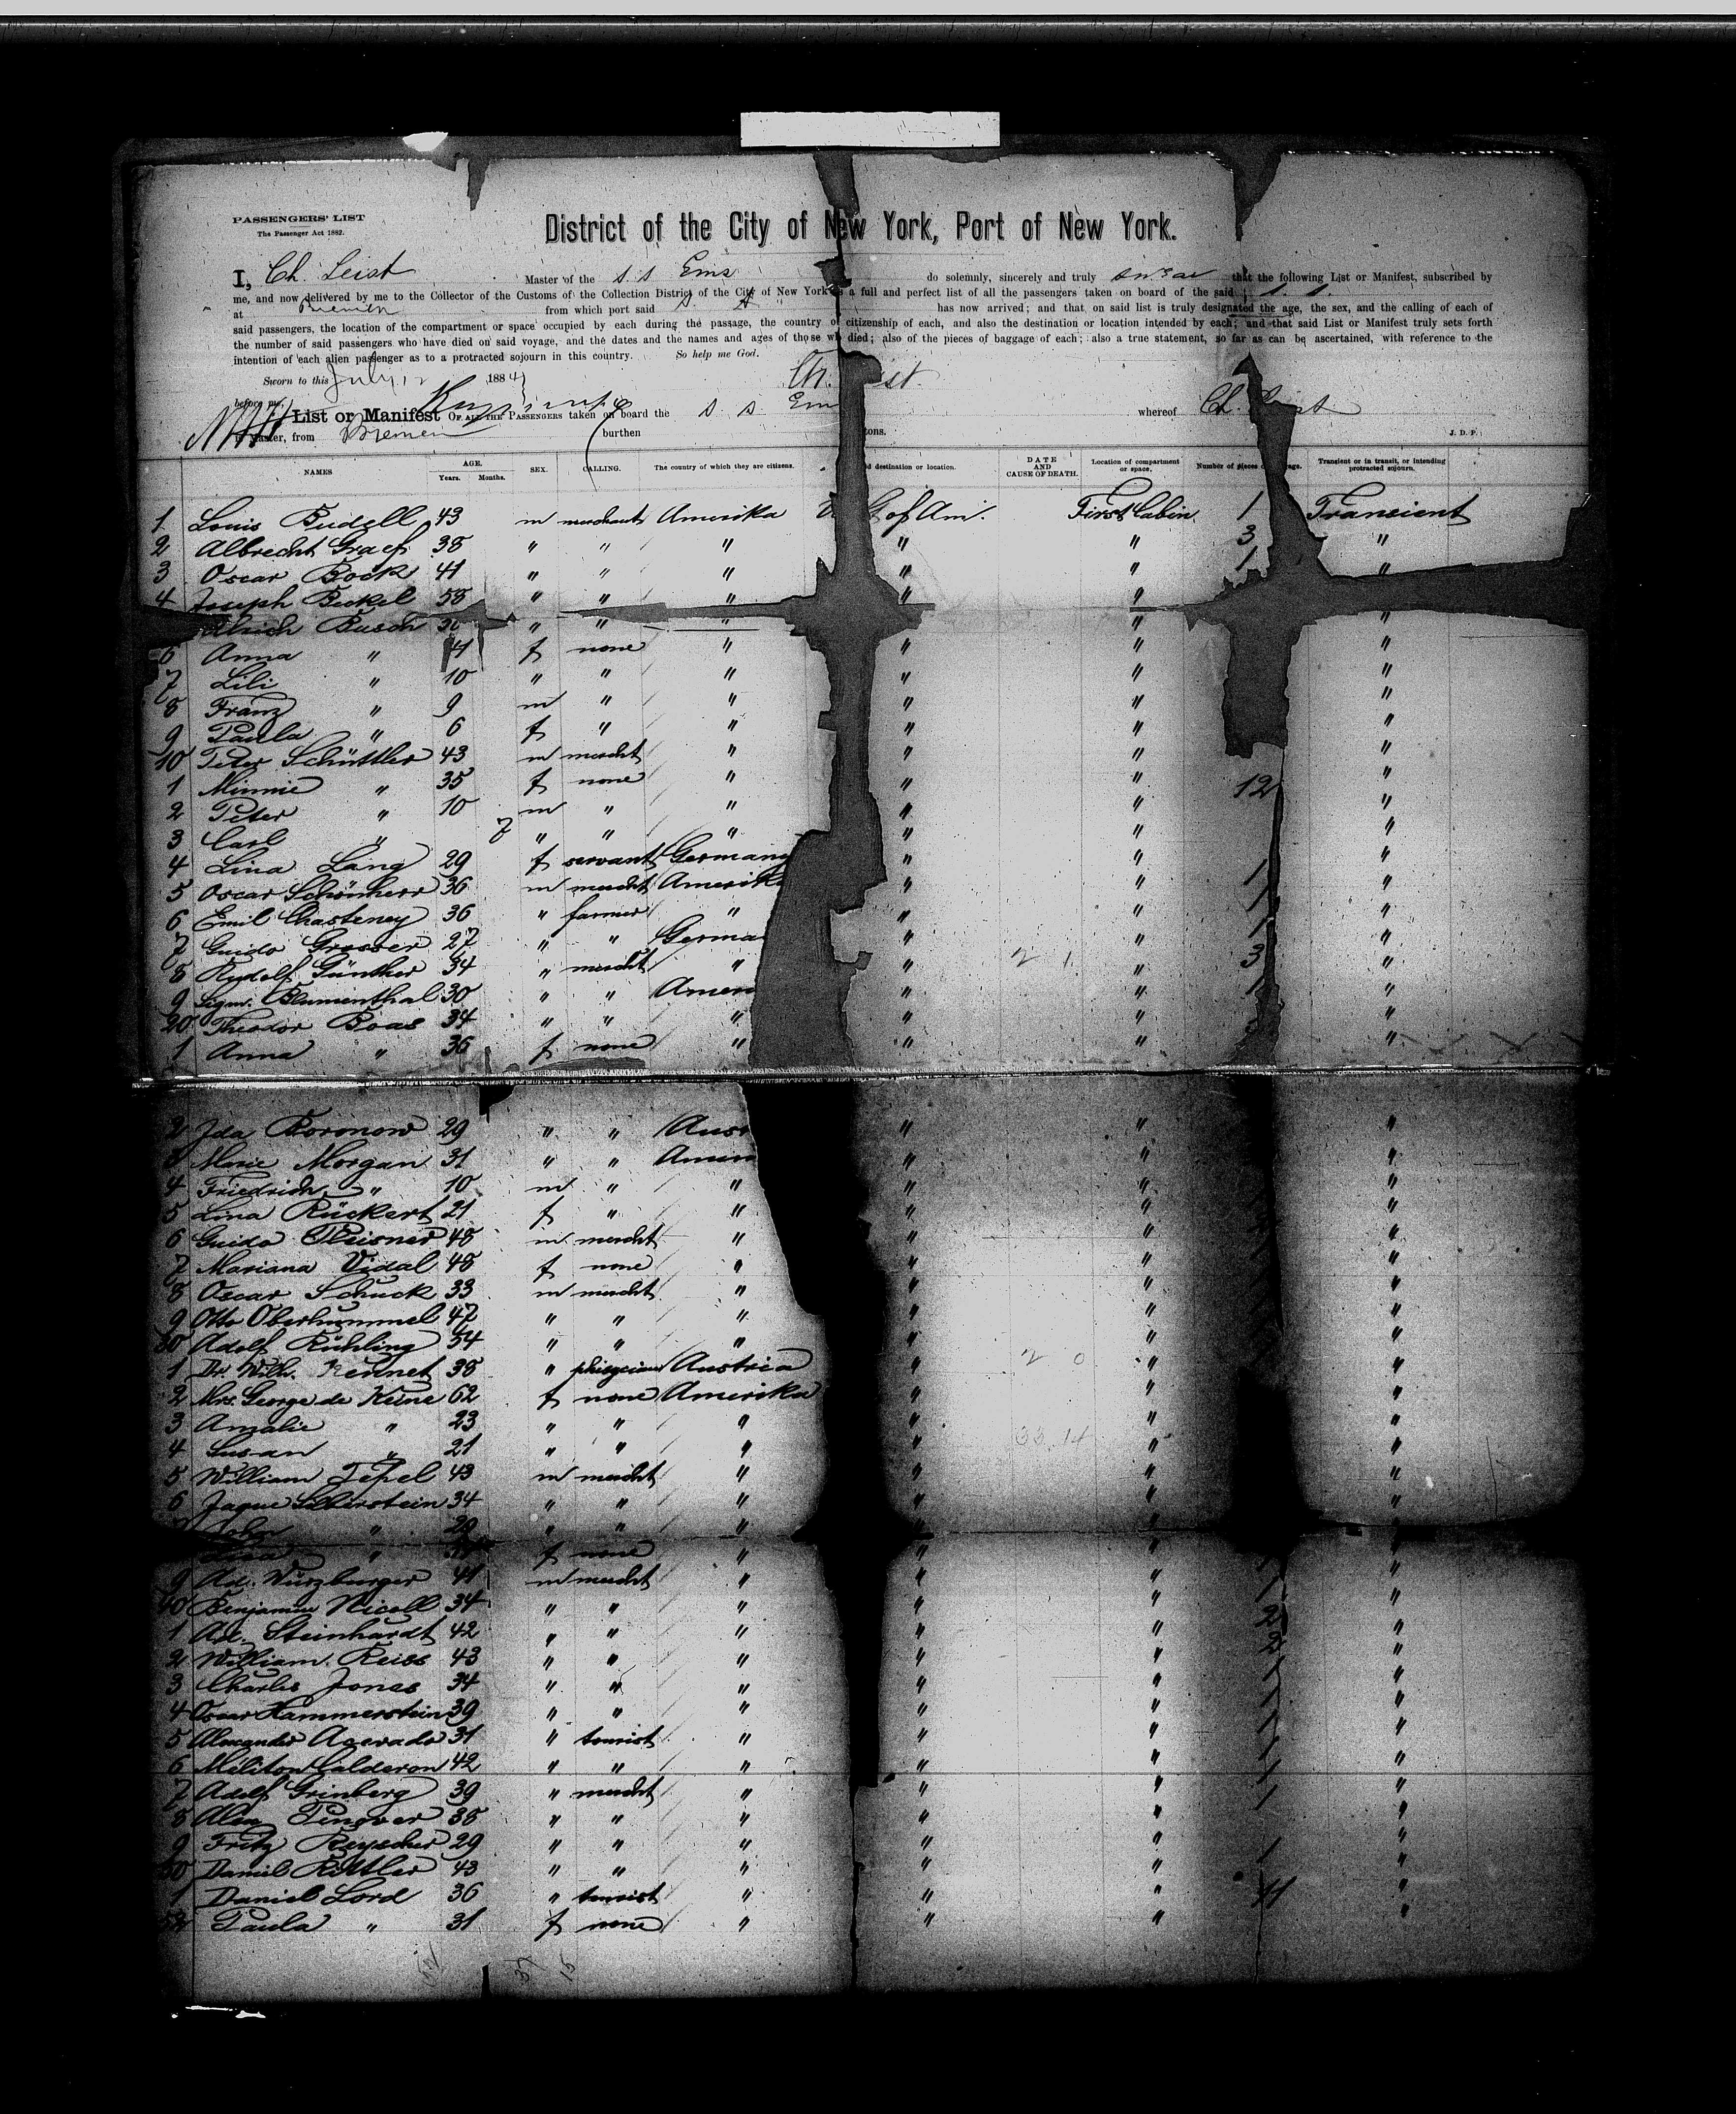 PASSENGERS' LIST
The Passenger Act 1882.
District of the City of New York, Port of New York.
I, Ch. Leist Master of the s. s Ems do solemnly, sincerely and truly swear that the following List or Manifest, subscribed by
me, and now delivered by me to the Collector of the Customs of the Collection District of the City of New York is a full and perfect list of all the passengers taken on board of the said s. s.
at Bremen from which port said s. s has now arrived; and that on said list is truly designated the age, the sex, and the calling of each of
said passengers, the location of the compartment or space occupied by each during the passage, the country of citizenship of each, and also the destination or location intended by each; and that said List or Manifest truly sets forth
the number of said passengers who have died on said voyage, and the dates and the names and ages of those who died; also of the pieces of baggage of each; also a true statement, so far as can be ascertained, with reference to the
intention of each alien passenger as to a protracted sojourn in this country. So help me God.
Sworn to this July 12 1884 Ch. Leist.
before me,
List or Manifest OF ALL THE PASSENGERS taken on board the s. s. Ems whereof Ch. Leist
is Master, from Bremen burthen tons. J. D. P.
NAMES AGE. Years. Months. SEX. CALLING. The country of which they are citizens. destination or location. DATE AND CAUSE OF DEATH. Location of compartment or space. Number of pieces Transient or in transit, or intending protracted sojourn.
1 Louis Budell 43 m merchant Amerika of Am. First Cabin 1 Transient
2 Albrecht Graef 38 " " " " " 3 "
3 Oscar Bock 41 " " " " " 1 "
4 Joseph Bickel 58 " " " " "
Ulrich Busch " " " " "
6 Anna " 41 f none " " " "
7 Lili " 10 " " " " " "
8 Franz " 9 m " " " " "
9 Paula " 6 f " " " " "
10 Peter Schüttler 43 m mercht " " " "
1 Minnie " 35 f none " " " 12 "
2 Peter " 10 m " " " " "
3 Carl " 7 " " " " " "
4 Lina Lang 29 f servant Germany " " "
5 Oscar Schönherr 36 m mercht Amerika " " 1 "
6 Emil Chasteney 36 " farmer " " " 1 "
7 Guido Grosser 27 " " Germa " " 1 "
8 Rudolf Günther 34 " mercht " " " 3 "
9 Sigm. Blumenthal 30 " " Amer " " 1 "
20 Theodor Boas 34 " " " " " "
1 Anna " 36 f none " " " "
2 Ida Boronow 29 " " Aus " " "
3 Marie Morgan 31 " " Amer " " "
4 Friedrich " 10 m " " " " "
5 Lina Rückert 21 f " " " " "
6 Guido Pleisner 48 m mercht " " " "
7 Mariana Vidal 48 f none " " " "
8 Oscar Schuck 33 m mercht " " " "
9 Otto Oberhummel 47 " " " " " "
30 Adolf Rühling 54 " " " " " "
1 Dr. Wilh. 38 " phisycian Austria " " "
2 Mrs. George de Keine 62 f none Amerika " " "
3 Amalie " 23 " " " " " "
4 Susan " 21 " " " " " "
5 William Tepel 43 m mercht " " " "
6 Jaque Silberstein 34 " " " " " "
7 John " 29 " " " " " "
" f none " " " "
9 Ad. Würzburger 41 m mercht " " " "
40 Benjamin Nicoll 34 " " " " " "
1 Ad. Steinhardt 42 " " " " " 2 "
2 William Reiss 43 " " " " " "
3 Charles Jonas 34 " " " " " 1 "
4 Oscar Hammerstein 39 " " " " " 1 "
5 Alexander Acevado 31 " tourist " " " 1 "
6 Militon Calderon 42 " " " " " 1 "
7 Adolf Grinberg 39 " mercht " " " 1 "
8 Alex Pinover 38 " " " " " "
9 Fritz Reyscher 29 " " " " " 1 "
50 Daniel Rittler 43 " " " " " "
1 Daniel Lord 36 " tourist " " " 11 "
52 Paula " 31 f none " " " "
52 37 15